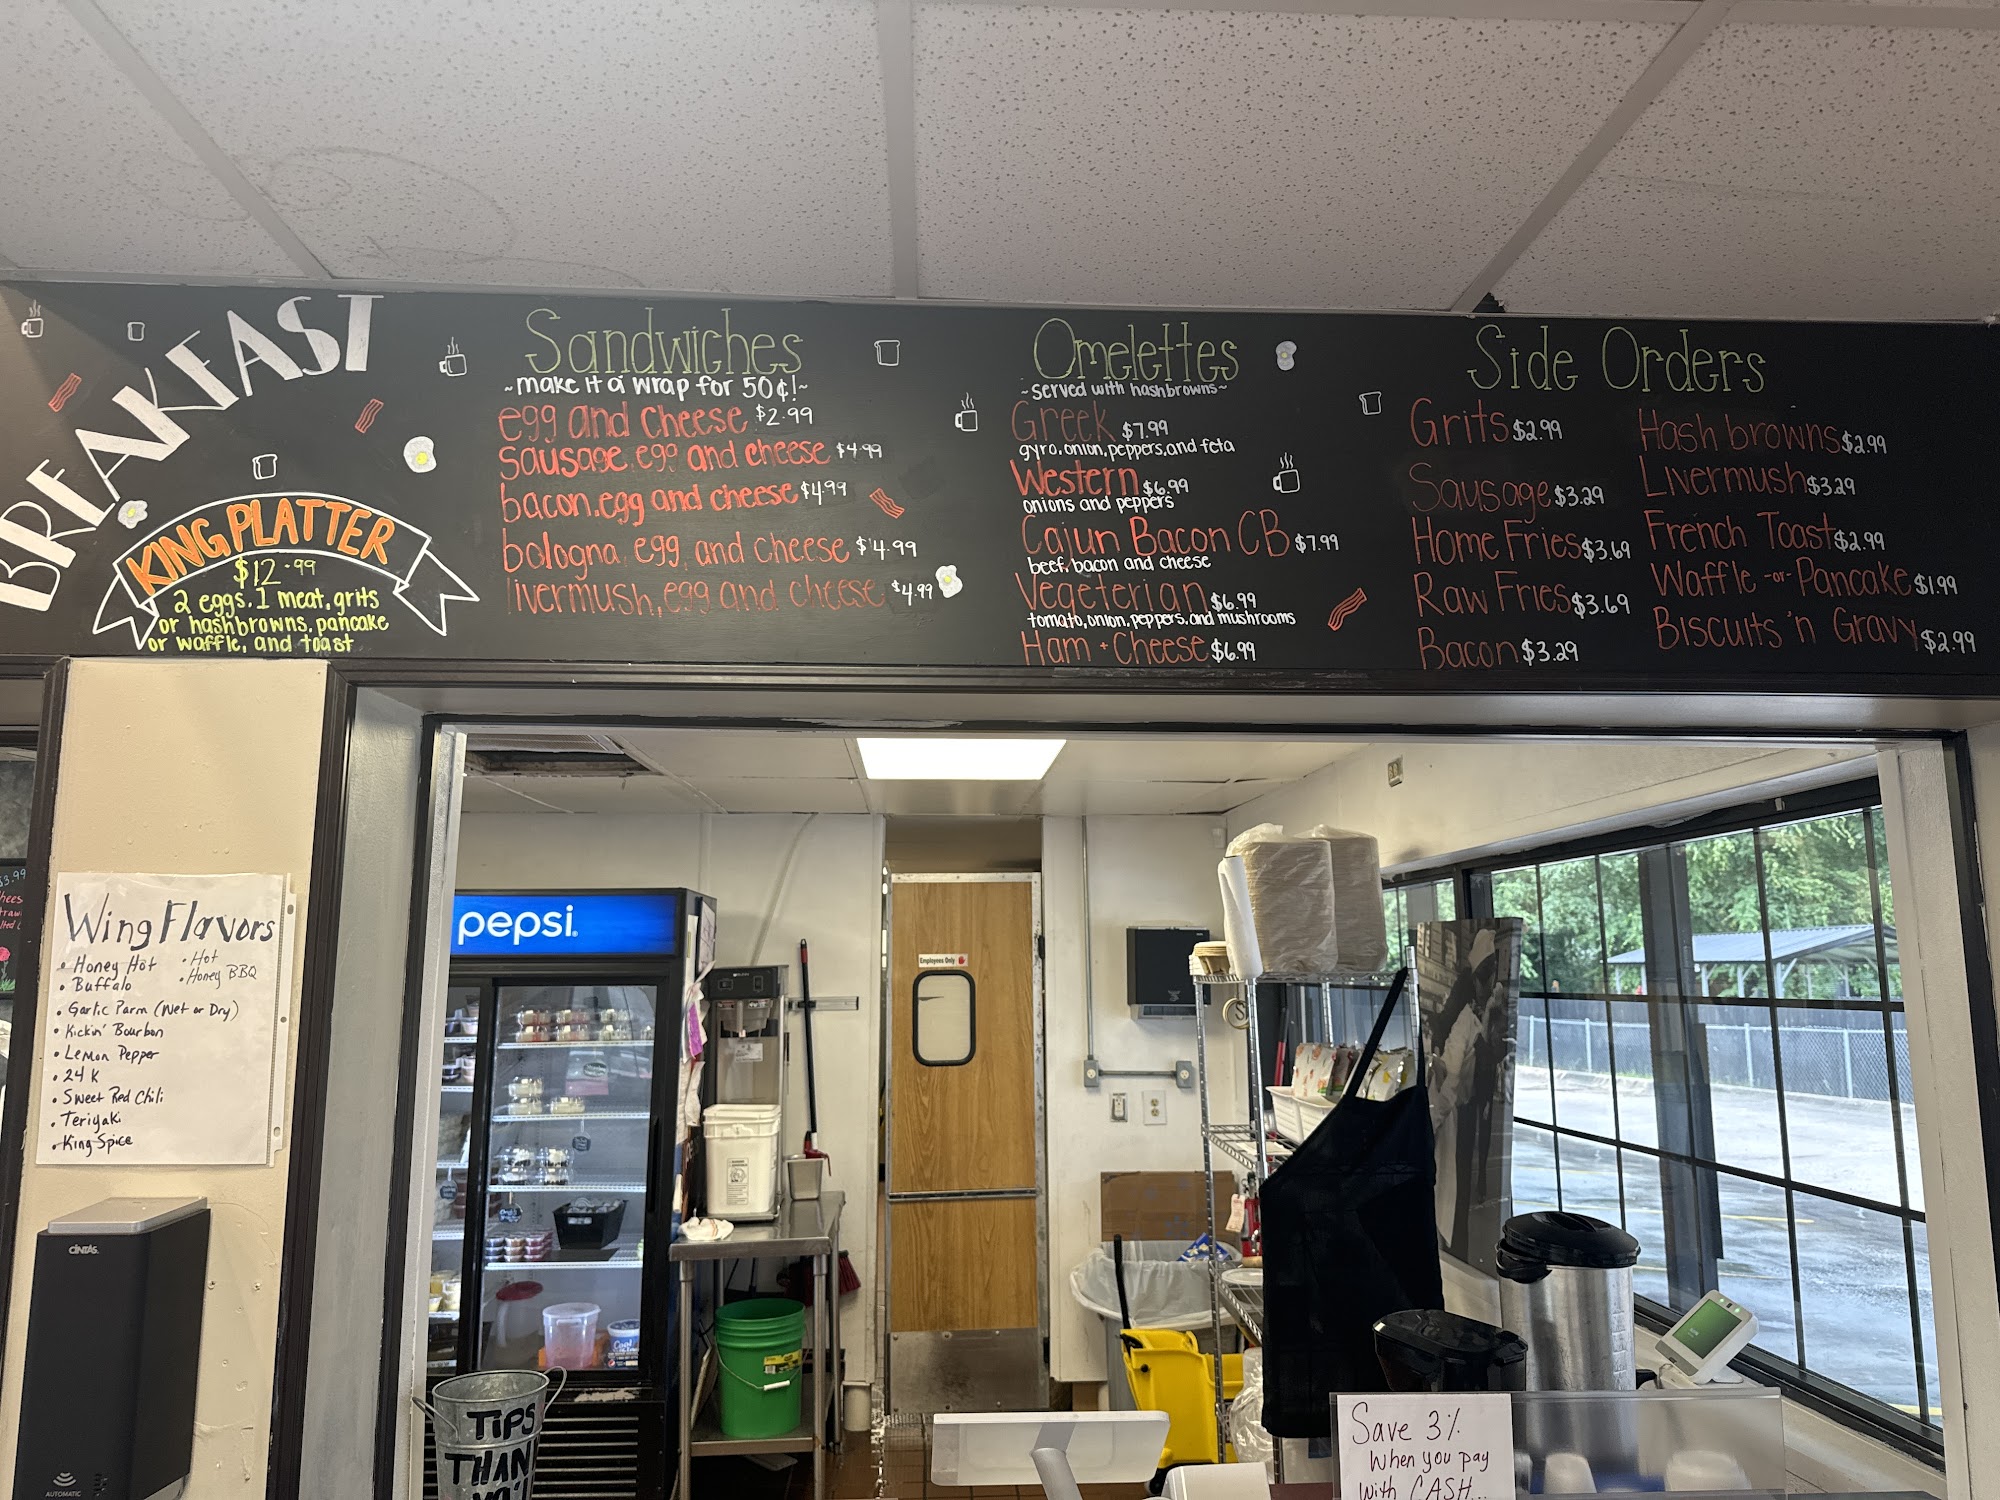 BREAKFAST
KING PLATTER
$12.99
2 eggs, 1 meat, grits
or hashbrowns, pancake
or waffle, and toast
Sandwiches
~make it a wrap for 50¢!~
egg and cheese $2.99
sausage, egg and cheese $4.99
bacon, egg and cheese $4.99
bologna, egg, and cheese $4.99
livermush, egg and cheese $4.99
Omelettes
~served with hashbrowns~
Greek $7.99
gyro, onion, peppers, and feta
Western $6.99
onions and peppers
Cajun Bacon CB $7.99
beef, bacon and cheese
Vegeterian $6.99
tomato, onion, peppers, and mushrooms
Ham + Cheese $6.99
Side Orders
Grits $2.99
Sausage $3.29
Home Fries $3.69
Raw Fries $3.69
Bacon $3.29
Hash browns $2.99
Livermush $3.29
French Toast $2.99
Waffle -or- Pancake $1.99
Biscuits 'n Gravy $2.99
$3.99
Wing Flavors
• Honey Hot
• Buffalo
• Garlic Parm (Wet or Dry)
• Kickin' Bourbon
• Lemon Pepper
• 24 K
• Sweet Red Chili
• Teriyaki
• King Spice
• Hot
• Honey BBQ
CINTAS
AUTOMATIC
pepsi
Employees Only
TIPS
THAN
Save 3%
When you pay
with CASH...